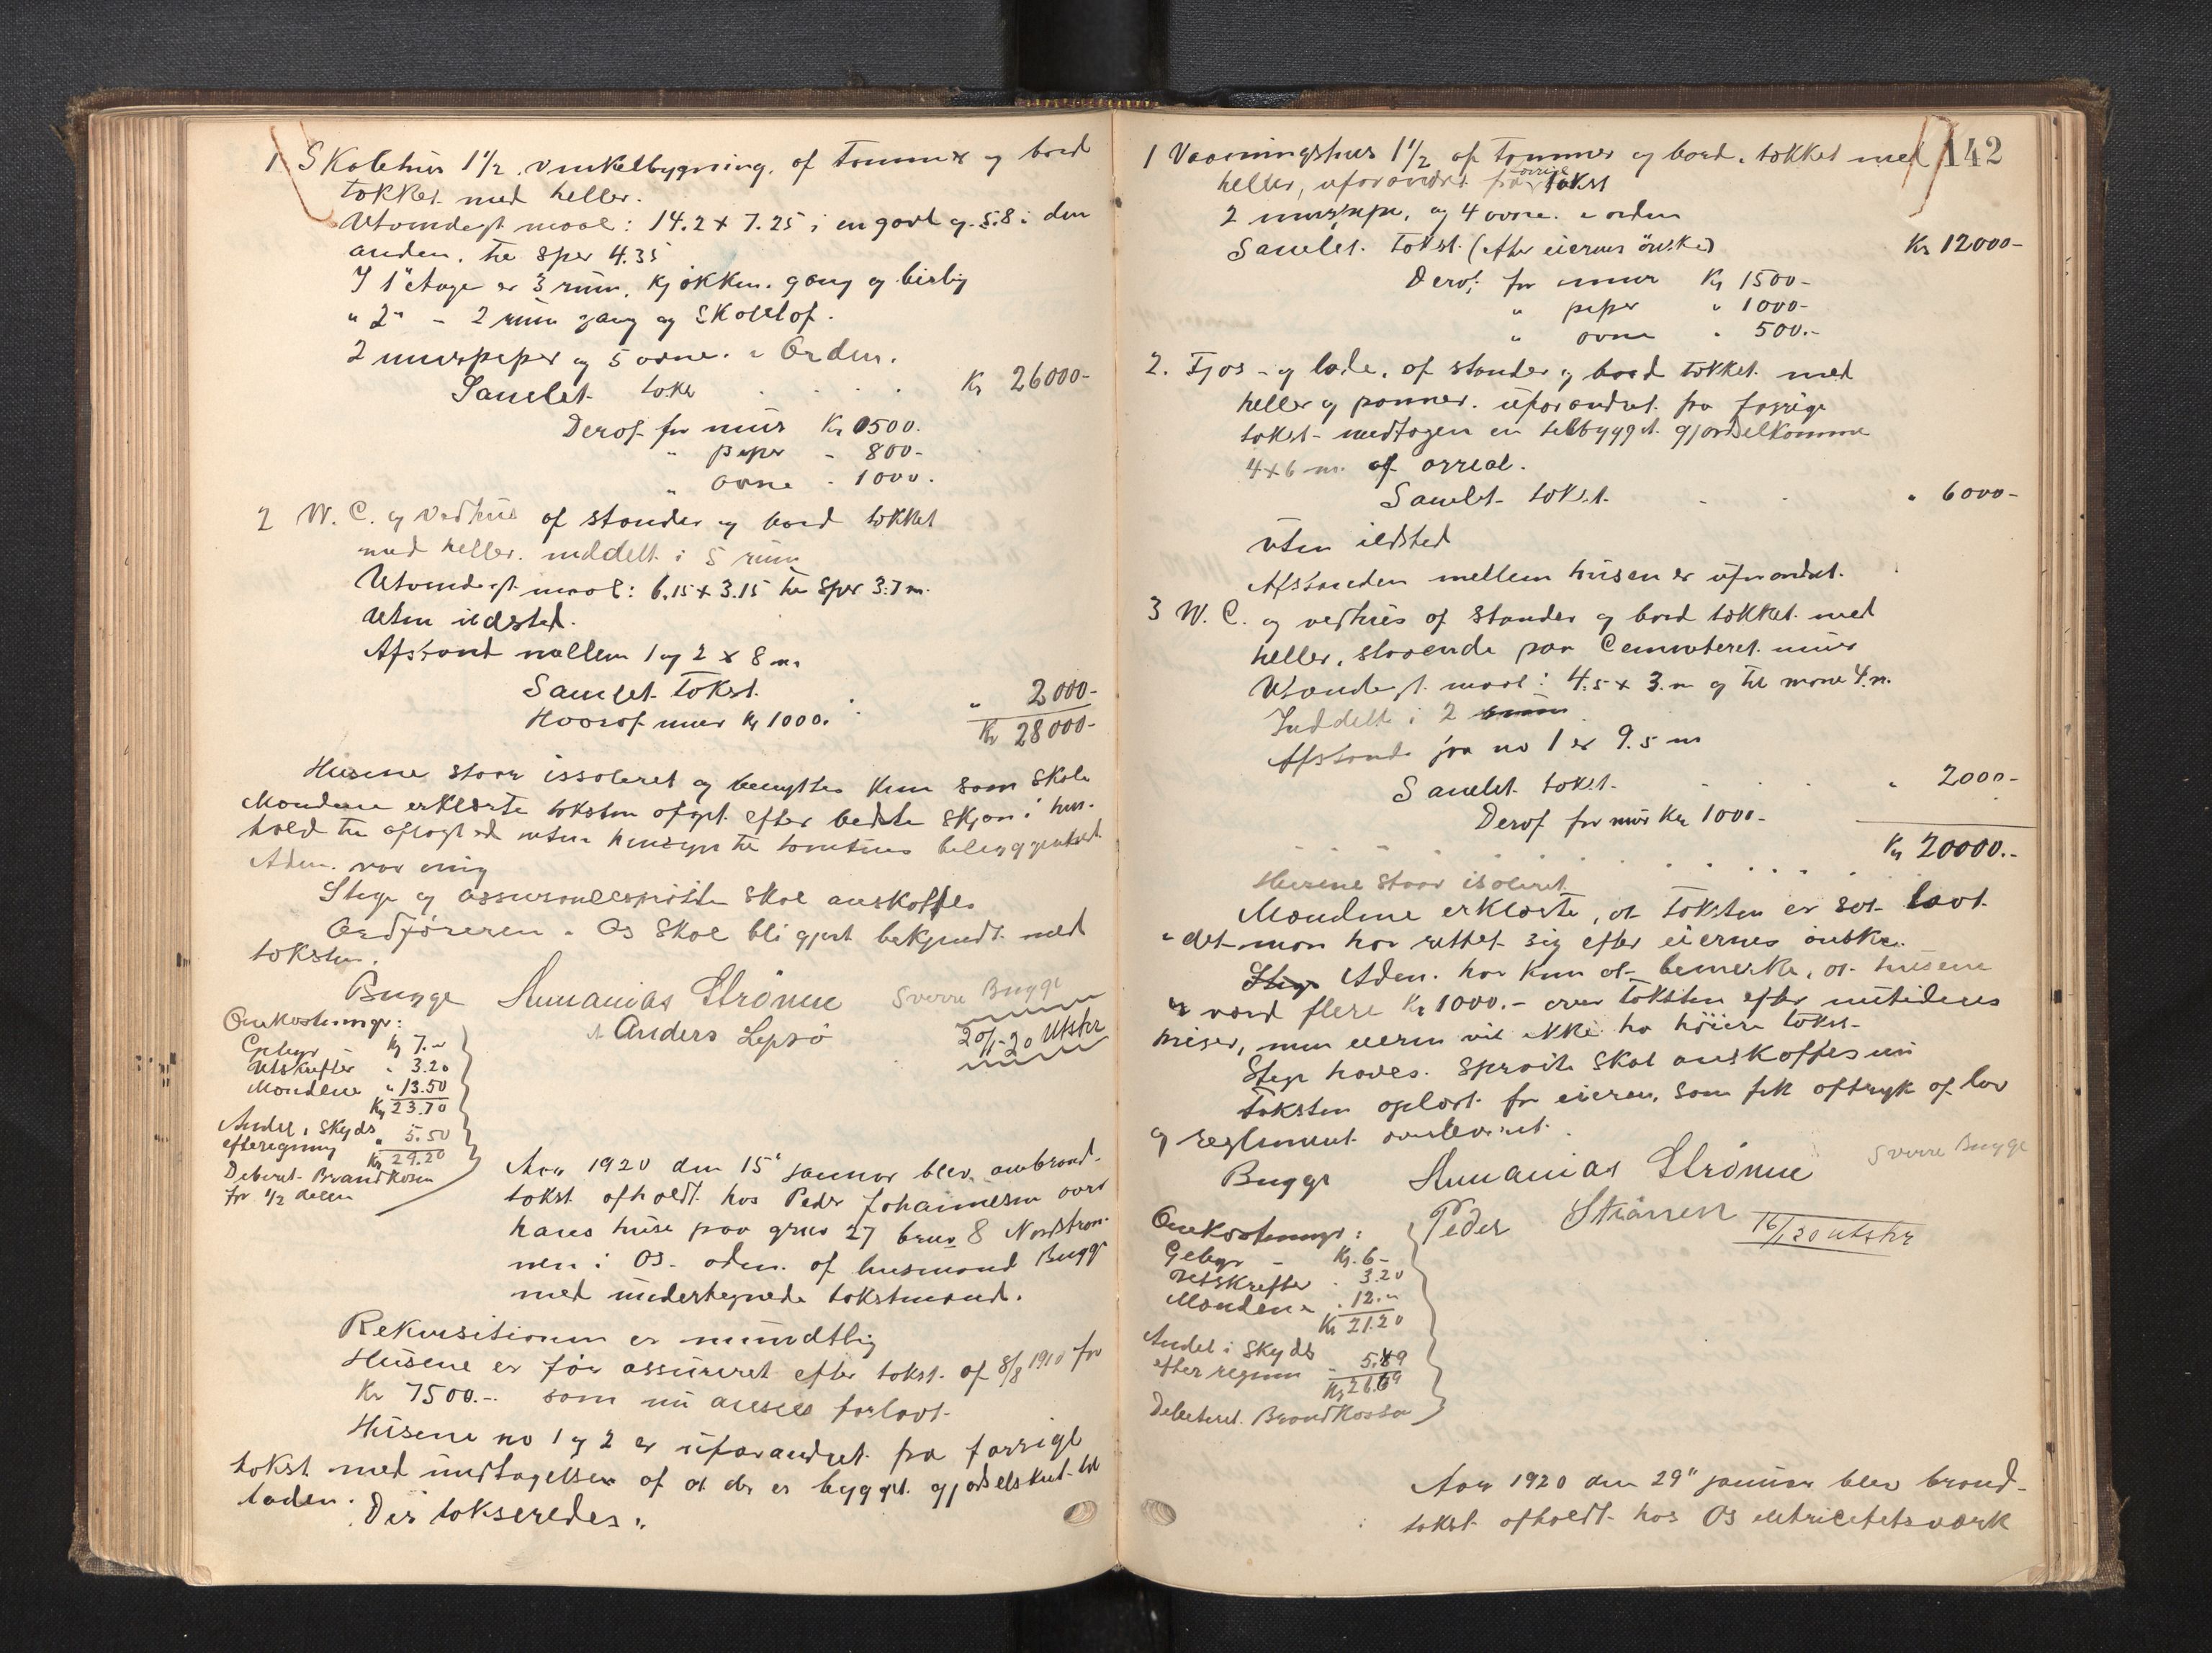 1 Skolehus 1 1/2. vinkelbygning, af tømmer og bord
tækket med heller.
Utvendigt maal: 14.2 x 7.25 i en gavl og 5.8 i den
anden, til sper 4.35
I 1" Etage er 3 rum, kjøkken. gang og bislag
" 2" - 2 rum gang og Skolelof.
2 murspiper og 5 ovne. i Orden.
Samlet takst . . . . Kr 26000-
Deraf for mur Kr 1500.
" piper - 800-
" ovne - 1000.
2 W. C. og Vedhus af stander og bord tækket
med heller. inddelt i 5 rum
Utvendigt maal: 6.15 x 3.15 til sper 3.7 m.
Uten ildsted.
Afstand mellem 1 og 2 8 m.
Samlet Takst. " 2000-
Hvoraf mur Kr 1000. Kr 28000-
Husene staar issoleret og benyttes kun som skole
Mændene erklærte taksten afgit efter bedste skjøn i hen-
hold til aflagt ed uten hensyn til tomtens beliggenhed
Adm. var enig
Stige og assuransesprøite skal anskaffes
Ordføreren i Os skal bli gjort bekjendt med
taksten.
Bugge Ananias Strønne Sverre Bugge
A Anders Lepsø 20/1-20 Utskr
Omkostninger:
Gebyr - Kr 7.-
Utskrifter " 3.20
Mændene " 13.50
Kr 23.70
Andel i Skyds
efter regning " 5.50
Kr 29.20
Debiteret Brandkassen
for 1/2 delen
Aar 1920 den 15' januar blev ombrand-
takst afholdt hos Peder Johannesen over
hans huse paa grno 27 brno 8 Nordstrøn-
nen i Os. adm. af lensmand Bugge
med undertegnede takstmænd.
Rekvisitionen er mundtlig
Husene er før assureret efter takst. af 8/8 1910 for
Kr 7500.-. som nu ansees forlavt.
Husene no 1 og 2 er uforandret fra forrige
takst med undtagelse af at der er bygget gjødselskut til
laden. Der takseredes:
142
1 Vaaningshus 1 1/2 af tømmer og bord, tækket med
heller, uforandret fra forrige takst
2 murspipe, og 4 ovne. i orden
Samlet. takst (efter eierens ønske) Kr 12000-
Deraf for mur Kr 1500-
" piper " 1000-
" ovne " 500.-
2. Fjøs - og lade, af stander og bord tækket med
heller og panner. uforandret fra forrige
takst - undtagen en tilbygget gjødselkomme
4x6 m. af areal.
Samlet takst. - - " 6000-
uten ildsted
Afstanden mellem husene er uforandret.
3 W. C. og vedhus af stander og bord tækket med
heller, staaende paa Cementeret mur
Utvendigt maal: 4.5 x 3. m og til møne 4. m.
Inddelt i 2 rum
Afstand fra no 1 er 9.5 m
Samlet takst. - - " 2000-
Deraf for mur Kr 1000-
Kr 20000.-
Husene staar isoleret
Mændene erklærte, at taksten er sat lavt
i det man har rettet sig efter eierens ønske.
Stige Adm. har kun at bemerke, at husene
er værd flere Kr 1000.- over taksten efter nutidens
priser, men eieren vil ikke ha høiere takst-
Stige haves. Sprøite skal anskaffes nu
Taksten oplæst for eieren, som fik aftryk af lov
og reglement overleveret.
Bugge Ananias Strønne Sverre Bugge
Peder Strønen 16/1 20 utskr
Omkostninger:
Gebyr - Kr. 6-
Utskrifter . 3.20
Mændene . 12.-
Kr 21.20
Andel i Skyds
efter regning - 5.49
Kr 26.69
Debiteret Brandkassa
Aar 1920 den 29" januar blev brand-
takst afholdt hos Os elektricitetsværk